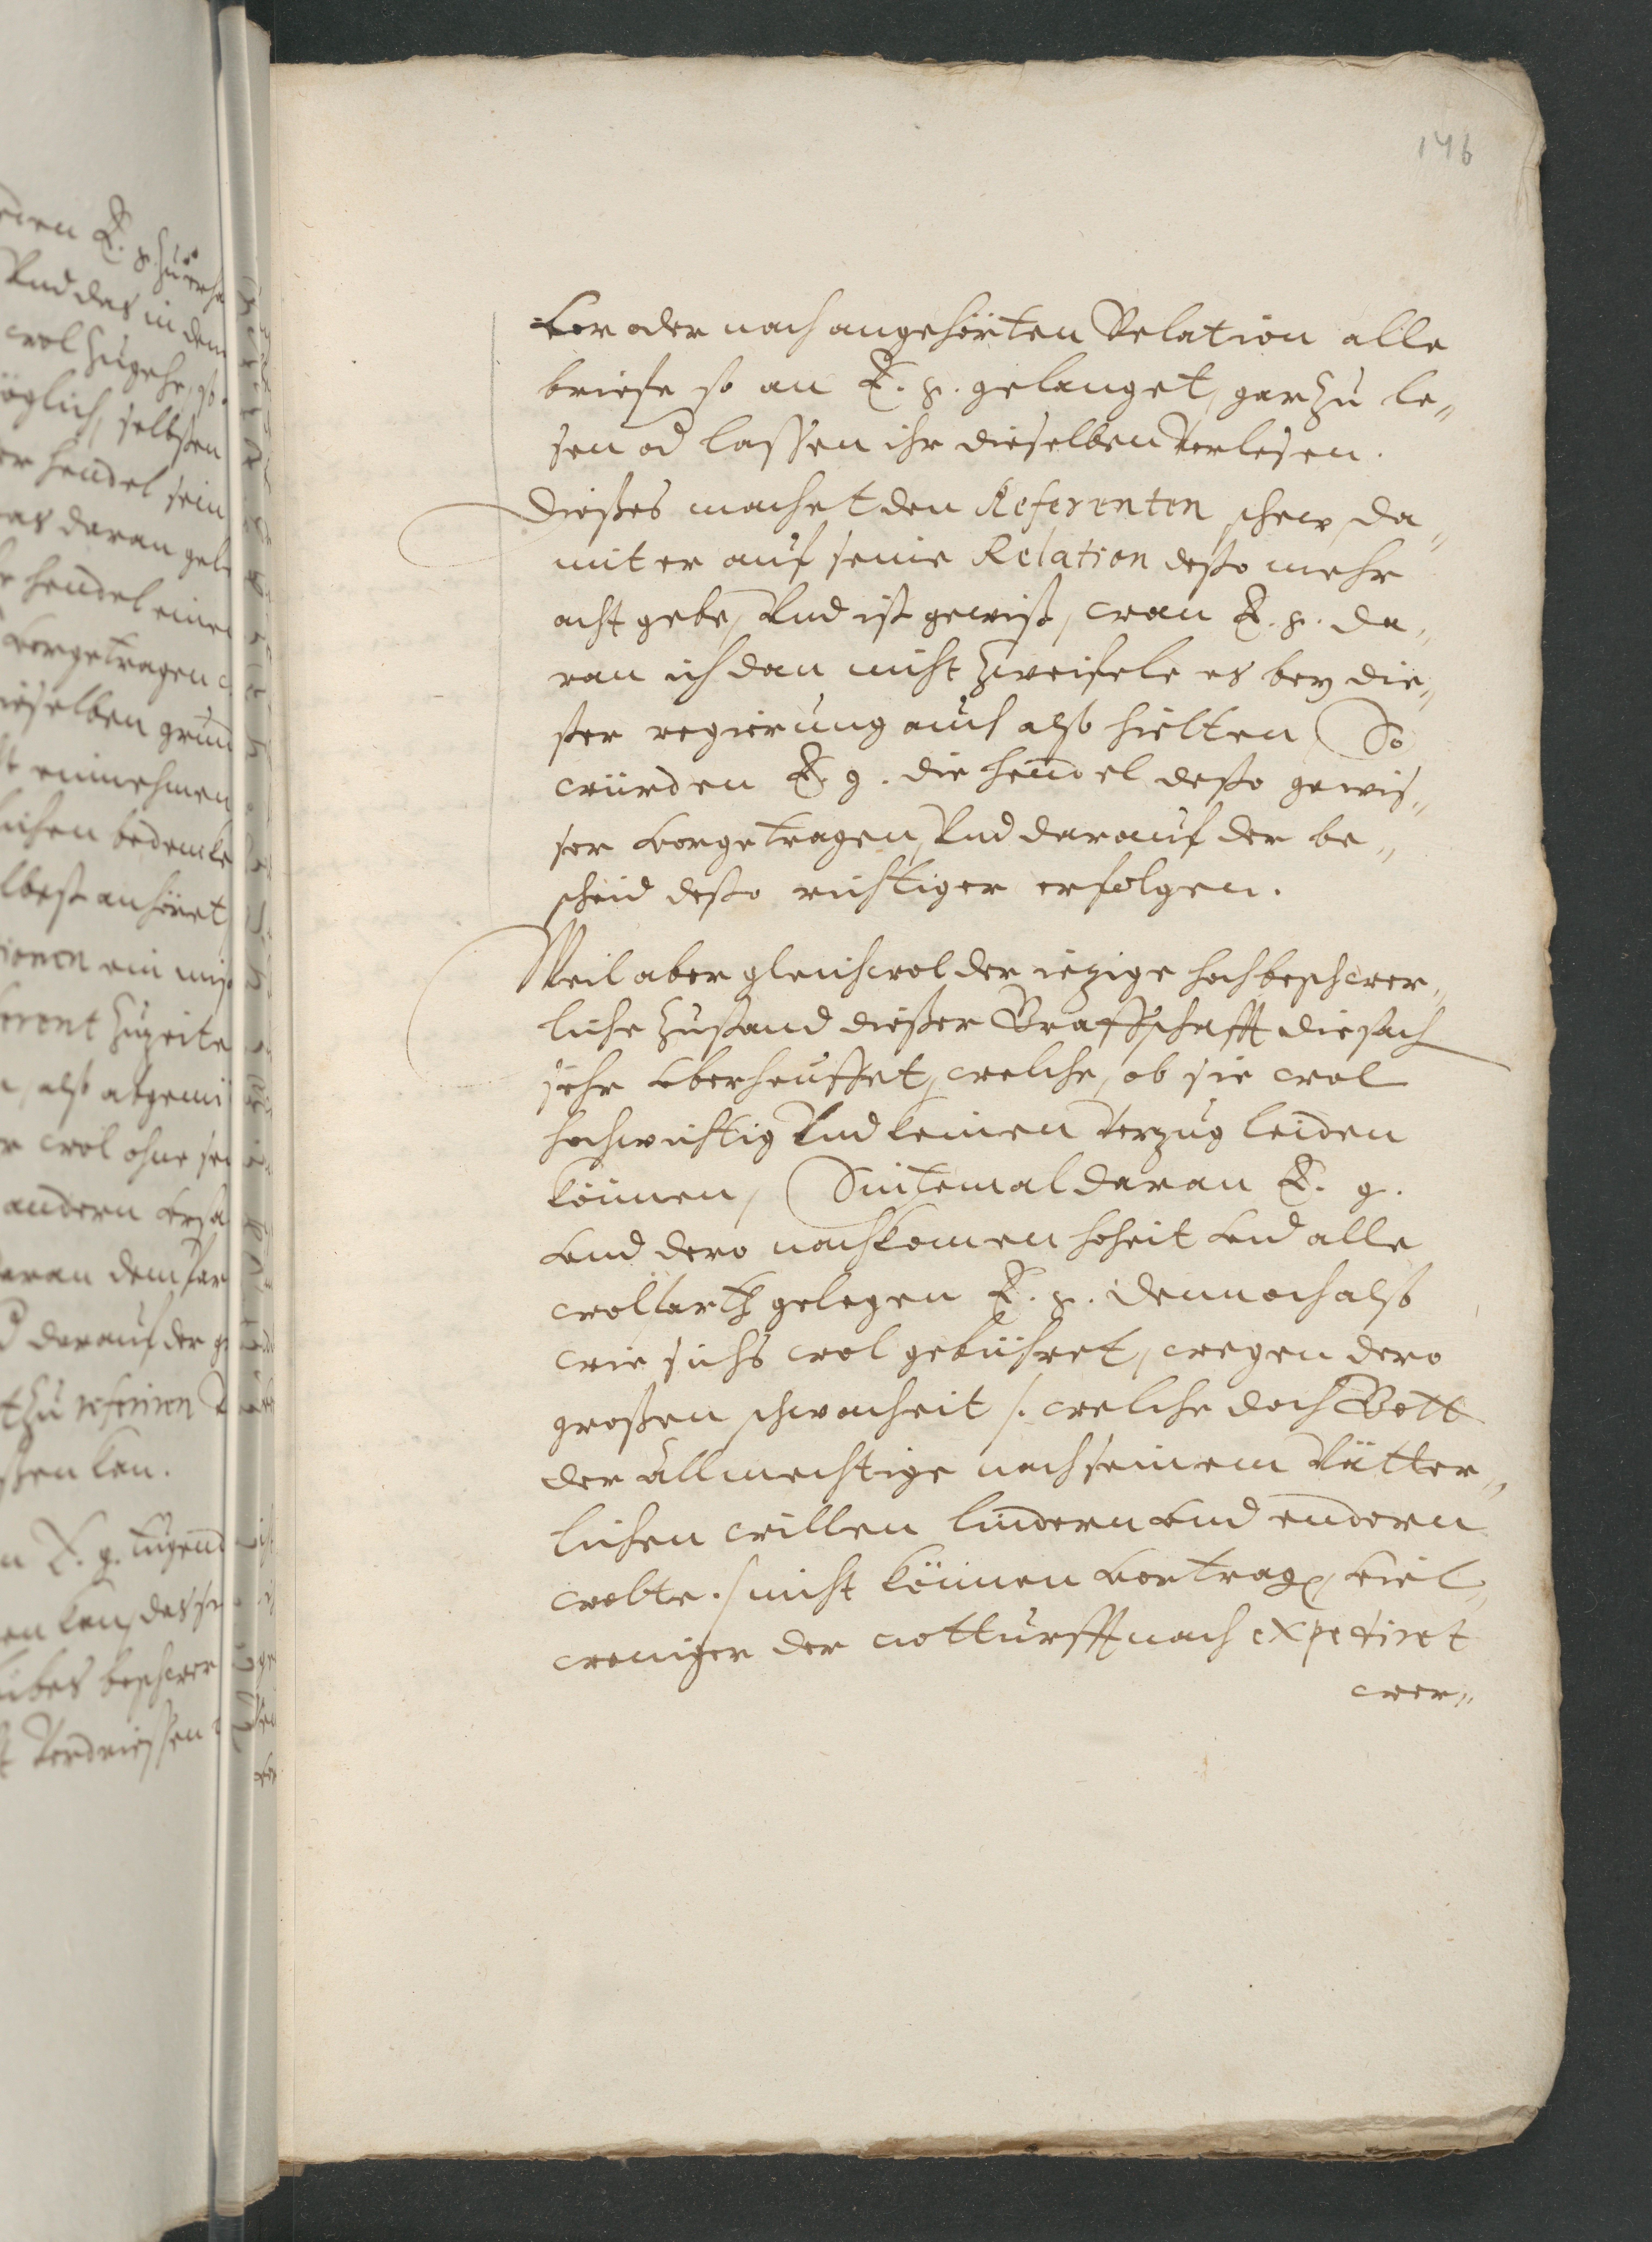 146
vor oder nach angehörten Relation alle
briefe so an E. g. gelanget, gar zu le„
sen od lassen ihr dieselben Verlesen.
Dießes machet den Referenten schew, da„
mit er auf seine Relation desto mehr
acht gebe, Vnd ist gewiß, wan E. g. da„
ran ich dan nicht zweifele es bey die„
ßer regierung auch alß hielten, So
würden E. g. die hendel desto gewis„
ser vorgetragen, Vnd darauf der be„
scheid desto richtiger erfolgen.
Weil aber gleichwol der iezige hochbeschwer„
liche zustand dießer Graffschafft die sach
sehr vberheuffet, welche, ob sie wol
hochwichtig Vnd keinen Verzug leiden
können, Sintemal daran E. g.
vnd dero nachkomen hoheit vnd alle
wolfarth gelegen E. g. dennoch alß
wie sichs wol gebühret, wegen dero
großen schwacheit /. welche doch Gott
der Allmechtige nach seinem Vätter„
lichen willen lindern vnd endern
wolte ./ nicht können vortragen, viel„
weniger der notturfft nach expediret
wer„